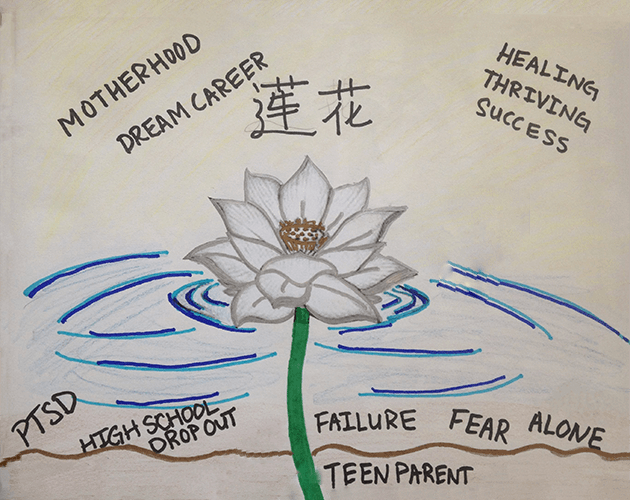 MOTHERHOOD
DREAM CAREER
莲花
HEALING
THRIVING
SUCCESS
PTSD
HIGH SCHOOL
DROP OUT
FAILURE
FEAR
ALONE
TEEN PARENT